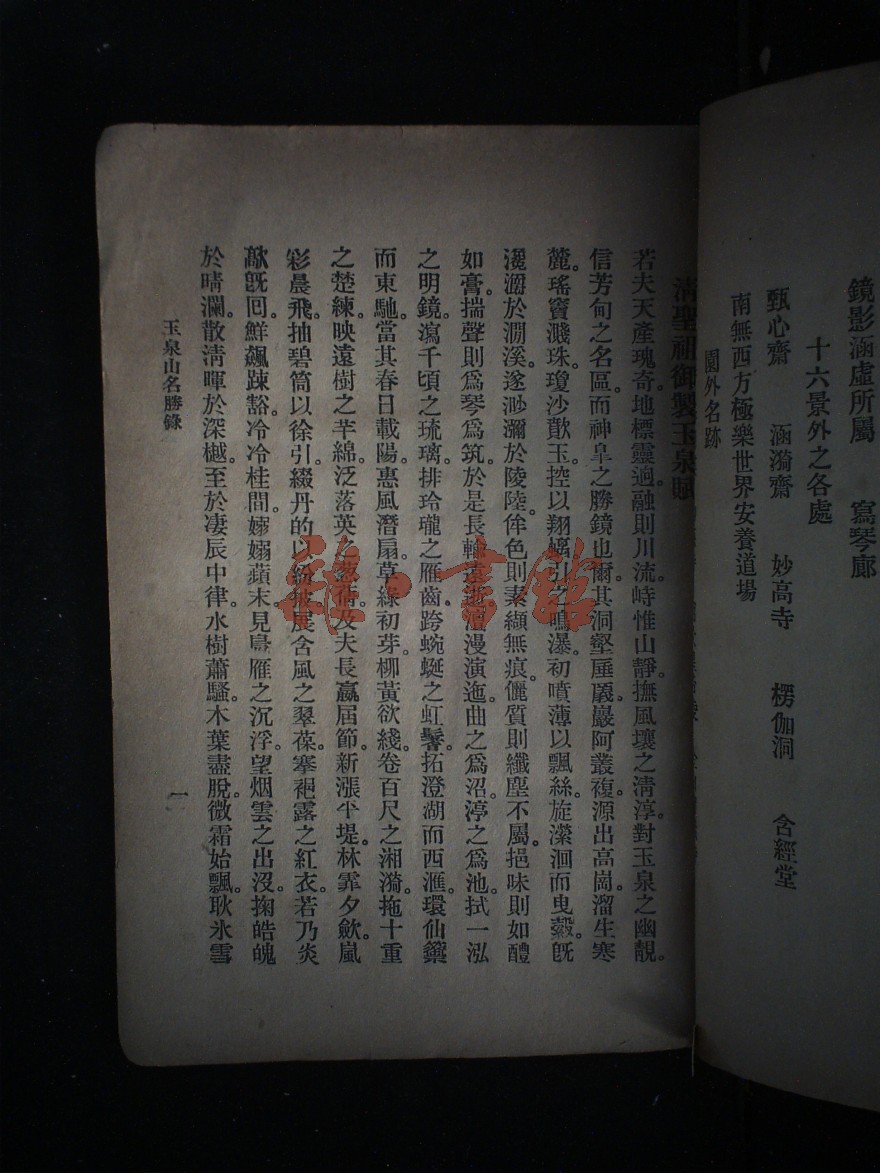 鏡影涵虛所屬　寫琴廊
十六景外之各處
甄心齋　涵漪齋　妙高寺　楞伽洞　含經堂
南無西方極樂世界安養道場
園外名跡
清聖祖御製玉泉賦
若夫天產瑰奇。地標靈迥。融則川流。峙惟山靜。撫風壤之清淳。對玉泉之幽靚。
信芳甸之名區。而神臯之勝鏡也。爾其洞壑厜㕒。巖阿叢複。源出高崗。溜生寒
麓。瑤竇濺珠。瓊沙歕玉。控以翔螭。引之鳴瀑。初噴薄以飄絲。旋瀠洄而曳縠。旣
瀺灂於澗溪。遂渺瀰於陵陸。侔色則素纈無痕。儷質則纖塵不屬。挹味則如醴
如膏。揣聲則爲琴爲筑。於是長輸遠逝。漫演迤。曲之爲沼。渟之爲池。拭一泓
之明鏡。瀉千頃之琉璃。排玲瓏之雁齒。跨蜿蜒之虹鬐。拓澄湖而西滙。環仙籞
而東馳。當其春日載陽。惠風潛扇。草綠初芽。柳黃欲綫。卷百尺之湘漪。拖十重
之楚練。映遠樹之芊綿。泛落英之葱蒨。及夫長嬴屆節。新漲平堤。林霏夕歛。嵐
彩晨飛。抽碧筒以徐引。綴丹的以紛披。展含風之翠葆。搴裛露之紅衣。若乃炎
歊旣囘。鮮飆踈豁。冷冷桂間。嫋嫋蘋末。見鳧雁之沉浮。望烟雲之出沒。掬皓魄
於晴瀾。散淸暉於深樾。至於凄辰中律。水樹蕭騷。木葉盡脫。微霜始飄。耿氷雪
玉泉山名勝錄
一
雜·書館